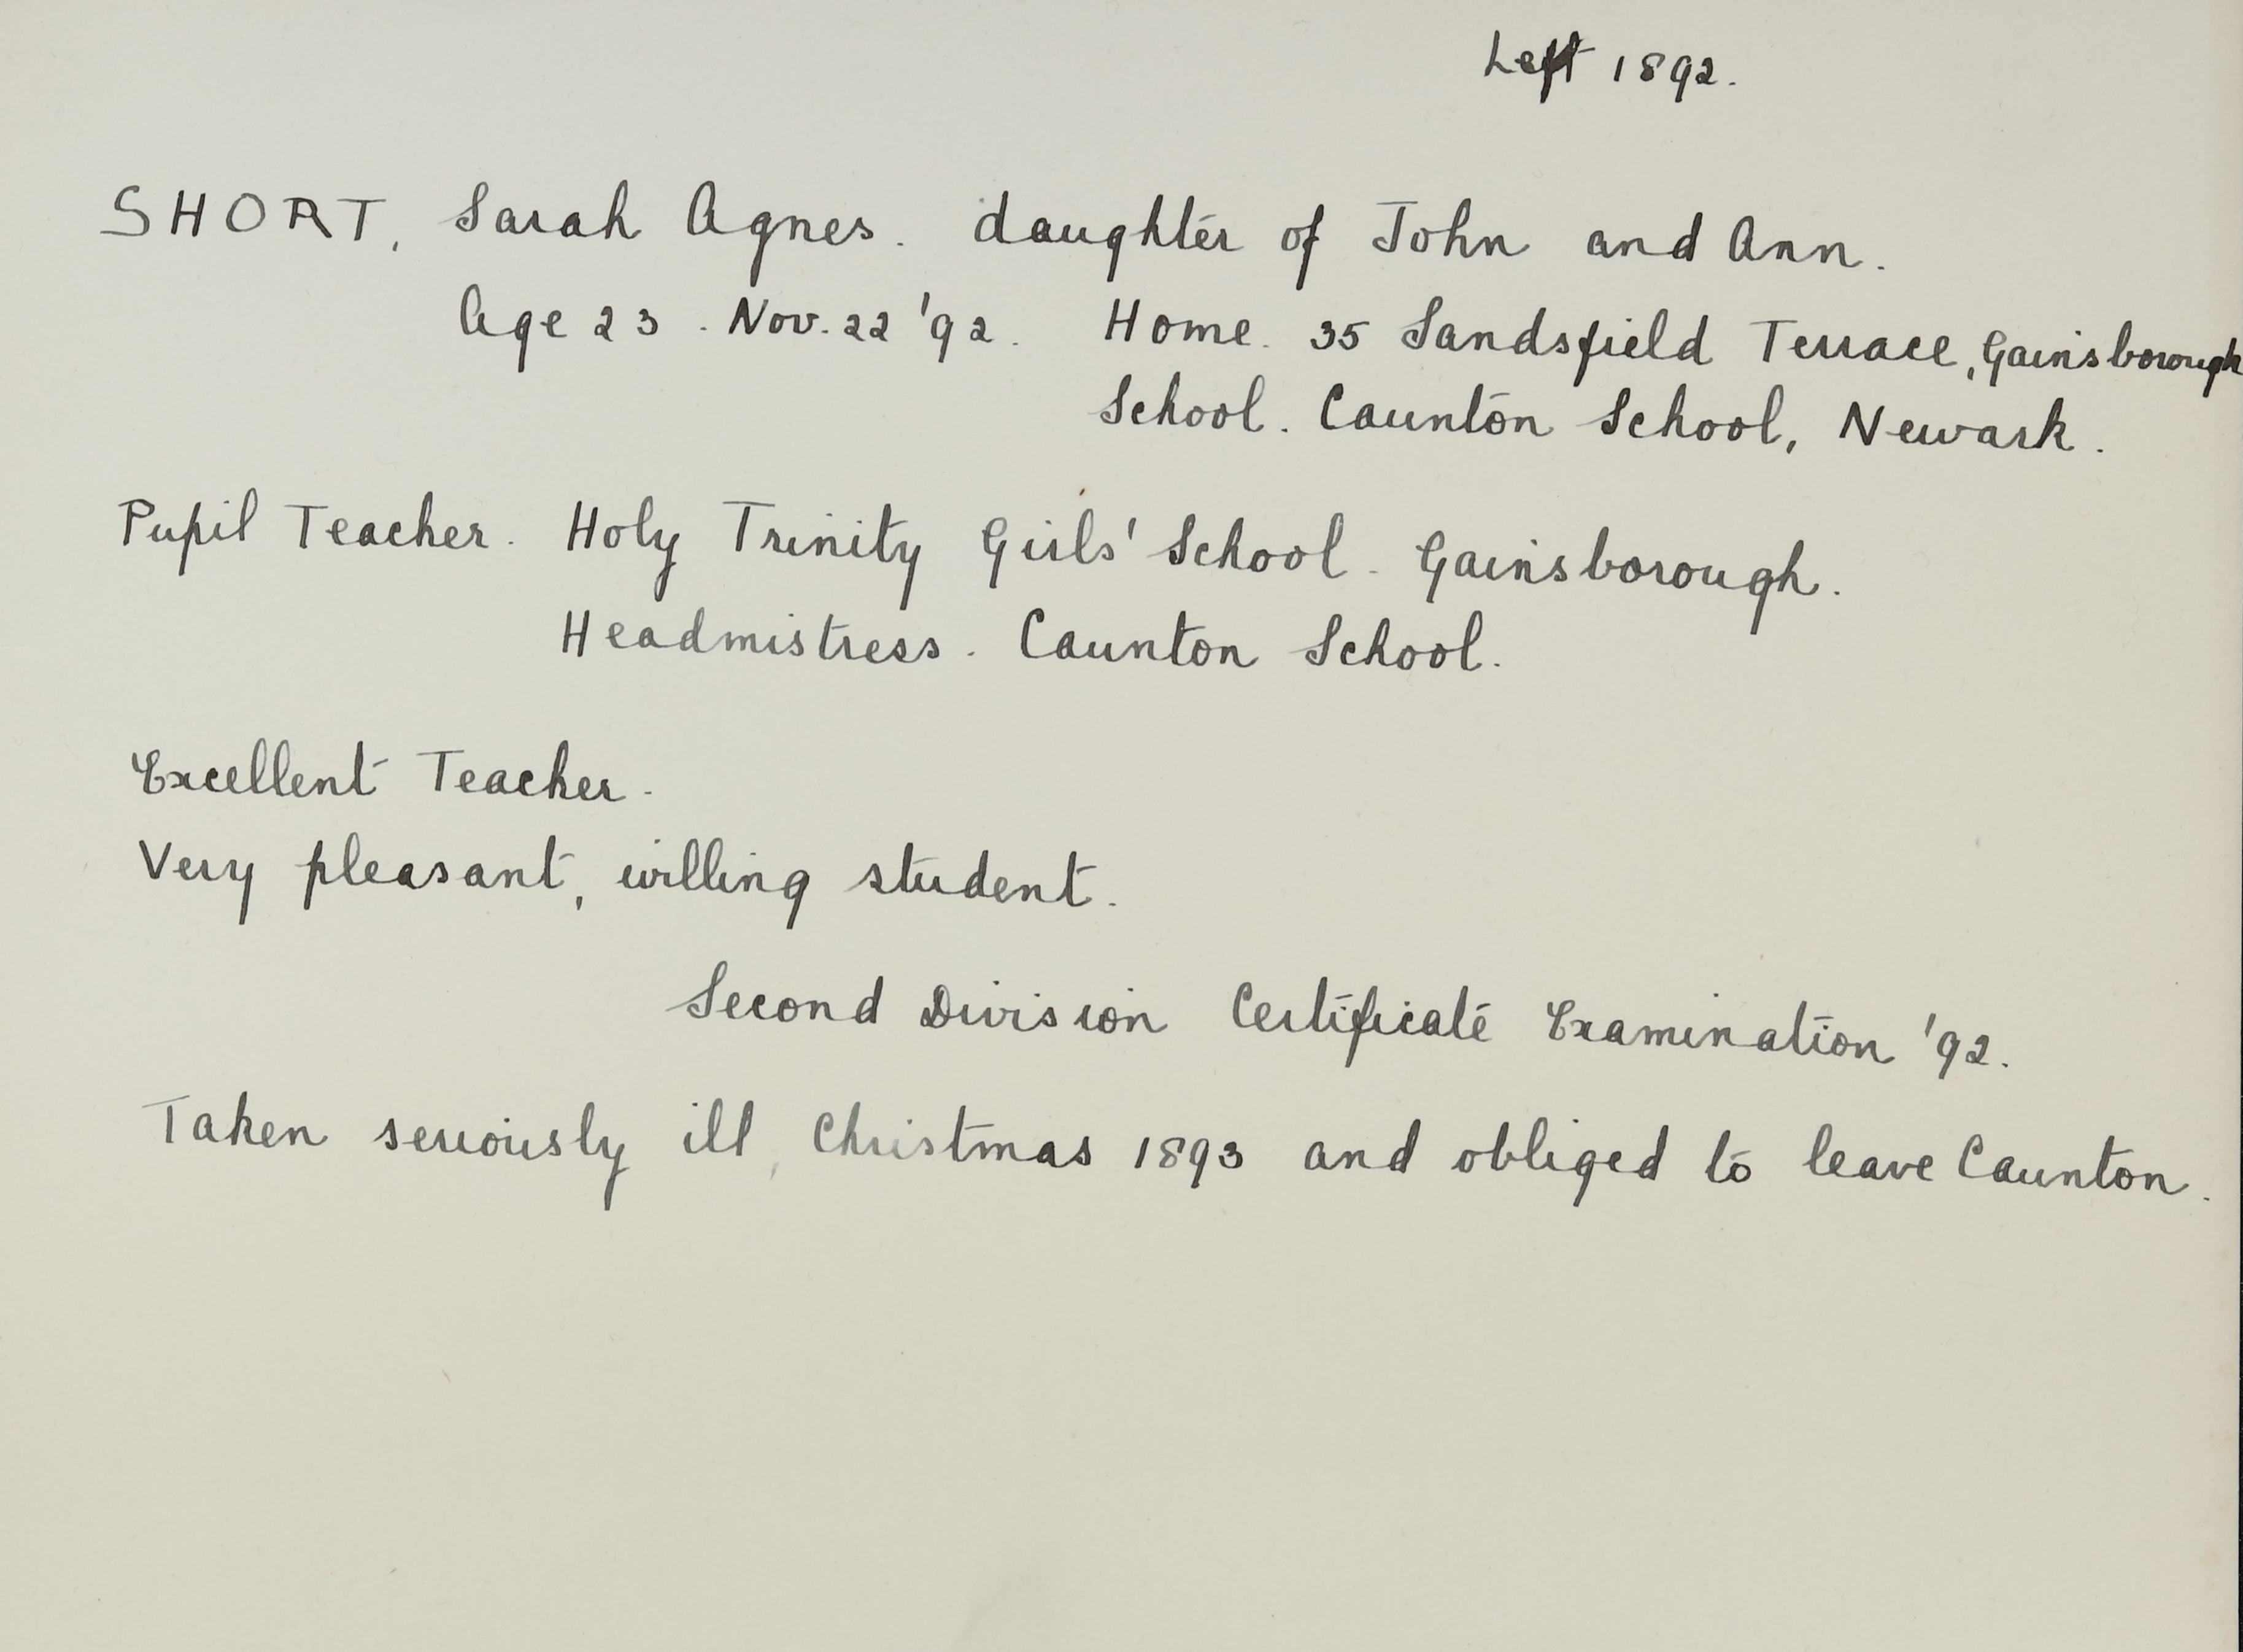 Left 1892.
SHORT, Sarah Agnes. daughter of John and Ann.
Age 23. Nov. 22 '92. Home. 35 Sandsfield Terrace, Gainsborough
School. Caunton School, Newark.
Pupil Teacher. Holy Trinity Girls' School. Gainsborough.
Headmistress. Caunton School.
Excellent Teacher.
Very pleasant, willing student.
Second Division Certificate Examination '92.
Taken seriously ill, Christmas 1893 and obliged to leave Caunton.